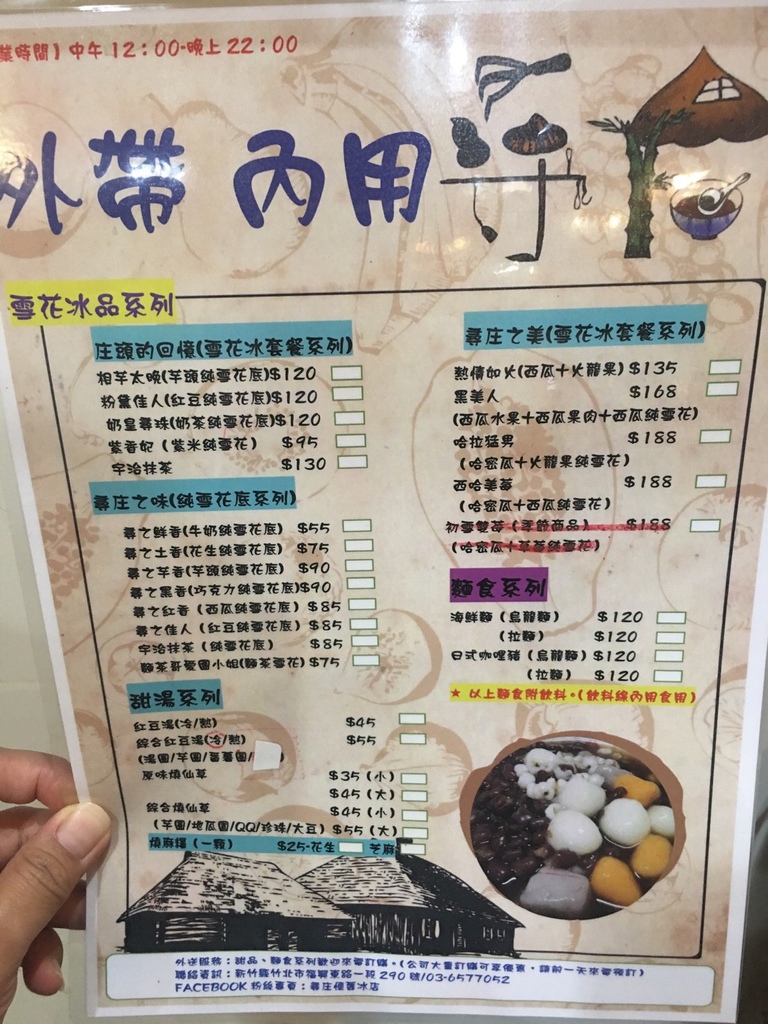 業時間】中午12：00-晚上22：00
外帶 內用
雪花冰品系列
庄頭的回憶(雪花冰套餐系列)
相芋太晚(芋頭純雪花底)$120
粉黛佳人(紅豆純雪花底)$120
奶皇尋珠(奶茶純雪花底)$120
紫香妃（紫米純雪花） $95
宇治抹茶 $130
尋庄之味(純雪花底系列)
尋之鮮香(牛奶純雪花底) $55
尋之土香(花生純雪花底) $75
尋之芋香(芋頭純雪花底) $90
尋之黑香(巧克力純雪花底)$90
尋之紅香（西瓜純雪花底）$85
尋之佳人（紅豆純雪花底）$85
宇治抹茶（純雪花底） $85
麵茶哥愛圓小姐(麵茶雪花) $75
甜湯系列
紅豆湯(冷/熱) $45
綜合紅豆湯(冷/熱) $55
(湯圓/芋圓/
原味燒仙草 $35 (小)
$45 (大)
綜合燒仙草 $45 (小)
(芋圓/地瓜圓/QQ/珍珠/大豆) $55 (大)
燒麻糬（一顆） $25-花生 芝麻
尋庄之美(雪花冰套餐系列)
熱情如火(西瓜+火龍果) $135
黑美人 $168
(西瓜水果+西瓜果肉+西瓜純雪花)
哈拉猛男 $188
（哈密瓜+火龍果純雪花）
西哈美莓 $188
（哈密瓜+西瓜純雪花）
初雪雙莓（季節商品） $188
（哈密瓜+草莓純雪花）
麵食系列
海鮮麵（烏龍麵） $120
（拉麵） $120
日式咖哩豬（烏龍麵）$120
（拉麵） $120
★ 以上麵食附飲料。(飲料線內用食用)
外送服務：甜品、麵食及所種迎來電訂購。(公司大量訂購可享優惠，請前一天來電預訂)
聯絡資訊：新竹縣竹北市嘉興東路一段 290 號/03-6577052
FACEBOOK 粉絲專頁：尋庄